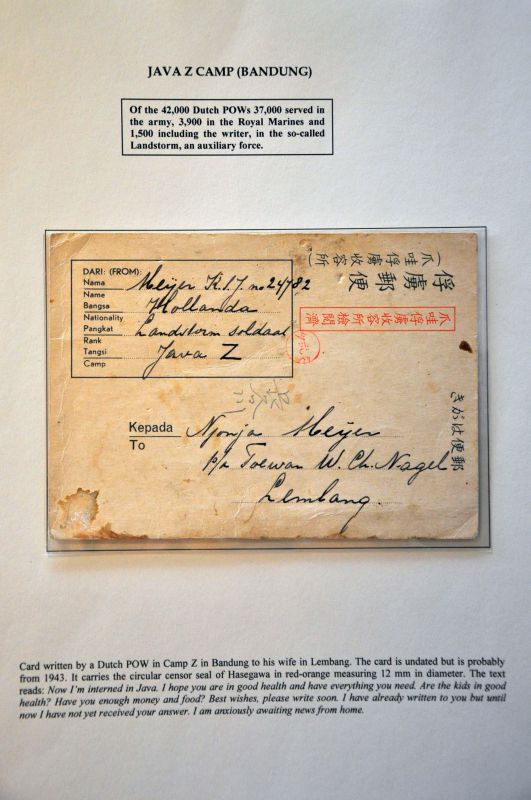 JAVA Z CAMP (BANDUNG)
Of the 42,000 Dutch POWs 37,000 served in
the army, 3,900 in the Royal Marines and
1,500 including the writer, in the so-called
Landstorm, an auxiliary force.
DARI: (FROM):
Nama
Name
Meijer K.I.J. no 24782
Bangsa
Nationality
Hollanda
Pangkat
Rank
Landstorm soldaat
Tangsi
Camp
Java Z
俘虜郵便
(爪哇俘虜收容所)
爪哇俘虜收容所檢閱濟
郵便はがき
Kepada
To
Njonja Meijer
p/a Toewan W. Ch. Nagel
Lembang.
Card written by a Dutch POW in Camp Z in Bandung to his wife in Lembang. The card is undated but is probably
from 1943. It carries the circular censor seal of Hasegawa in red-orange measuring 12 mm in diameter. The text
reads: Now I'm interned in Java. I hope you are in good health and have everything you need. Are the kids in good
health? Have you enough money and food? Best wishes, please write soon. I have already written to you but until
now I have not yet received your answer. I am anxiously awaiting news from home.